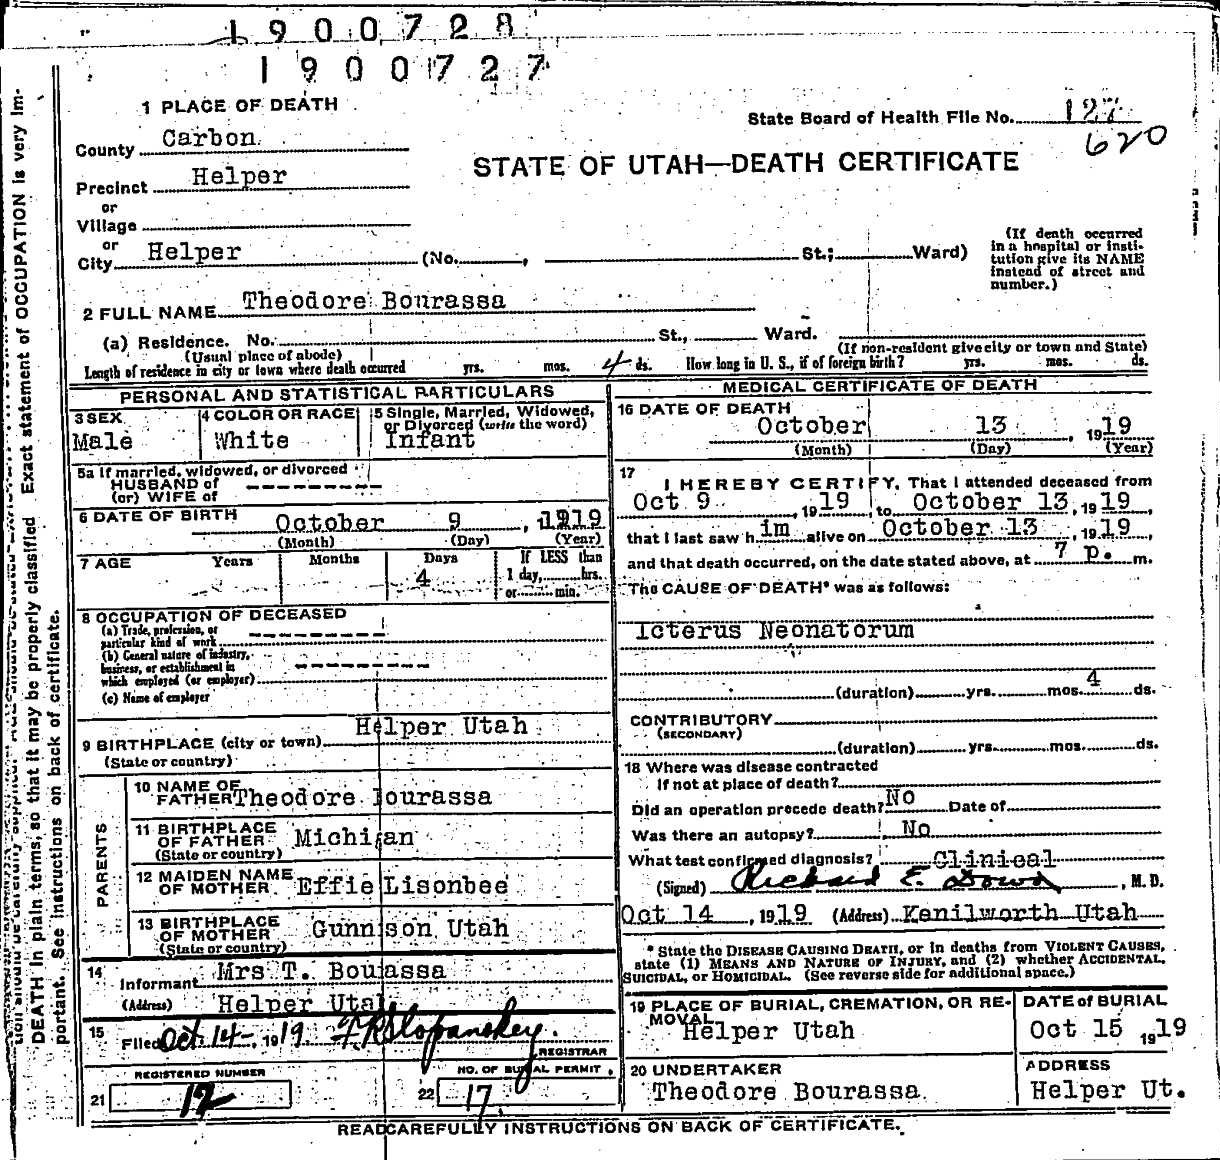 1900728
1900727
1 PLACE OF DEATH
State Board of Health File No. 127
620
County Carbon
STATE OF UTAH—DEATH CERTIFICATE
Precinct Helper
or
Village
or
City Helper (No. , St.; Ward)
(If death occurred in a hospital or institution give its NAME instead of street and number.)
2 FULL NAME Theodore Bourassa
(a) Residence. No. St., Ward.
(Usual place of abode) (If non-resident give city or town and State)
Length of residence in city or town where death occurred yrs. mos. 4 ds. How long in U. S., if of foreign birth? yrs. mos. ds.
PERSONAL AND STATISTICAL PARTICULARS
3 SEX
Male
4 COLOR OR RACE
White
5 Single, Married, Widowed, or Divorced (write the word)
Infant
5a If married, widowed, or divorced
HUSBAND of
(or) WIFE of
6 DATE OF BIRTH October 9, 1919
(Month) (Day) (Year)
7 AGE Years Months Days If LESS than
4 1 day, hrs.
or min.
8 OCCUPATION OF DECEASED
(a) Trade, profession, or
particular kind of work
(b) General nature of industry,
business, or establishment in
which employed (or employer)
(c) Name of employer
Helper Utah
9 BIRTHPLACE (city or town)
(State or country)
PARENTS
10 NAME OF
FATHER Theodore Bourassa
11 BIRTHPLACE
OF FATHER Michigan
(State or country)
12 MAIDEN NAME
OF MOTHER Effie Lisonbee
13 BIRTHPLACE
OF MOTHER Gunnison Utah
(State or country)
14
Informant Mrs T. Bouassa
(Address) Helper Utah
15
Filed Oct 14- 1919
REGISTRAR
REGISTERED NUMBER
21 12
NO. OF BURIAL PERMIT
22 17
MEDICAL CERTIFICATE OF DEATH
16 DATE OF DEATH
October 13, 1919
(Month) (Day) (Year)
17
I HEREBY CERTIFY, That I attended deceased from
Oct 9, 1919 to October 13, 1919
that I last saw him alive on October 13, 1919,
and that death occurred, on the date stated above, at 7 p. m.
The CAUSE OF DEATH* was as follows:
Icterus Neonatorum
(duration) yrs. mos. 4 ds.
CONTRIBUTORY
(SECONDARY)
(duration) yrs. mos. ds.
18 Where was disease contracted
If not at place of death?
Did an operation precede death? No Date of
Was there an autopsy? No
What test confirmed diagnosis? Clinical
(Signed) Richard E. Dowd, M. D.
Oct 14, 1919 (Address) Kenilworth Utah
* State the DISEASE CAUSING DEATH, or in deaths from VIOLENT CAUSES,
state (1) MEANS AND NATURE OF INJURY, and (2) whether ACCIDENTAL,
SUICIDAL, or HOMICIDAL. (See reverse side for additional space.)
19 PLACE OF BURIAL, CREMATION, OR REMOVAL
Helper Utah
DATE of BURIAL
Oct 15 1919
20 UNDERTAKER
Theodore Bourassa
ADDRESS
Helper Ut.
READ CAREFULLY INSTRUCTIONS ON BACK OF CERTIFICATE.
DEATH in plain terms, so that it may be properly classified Exact statement of OCCUPATION is very Im-
portant. See instructions on back of certificate.